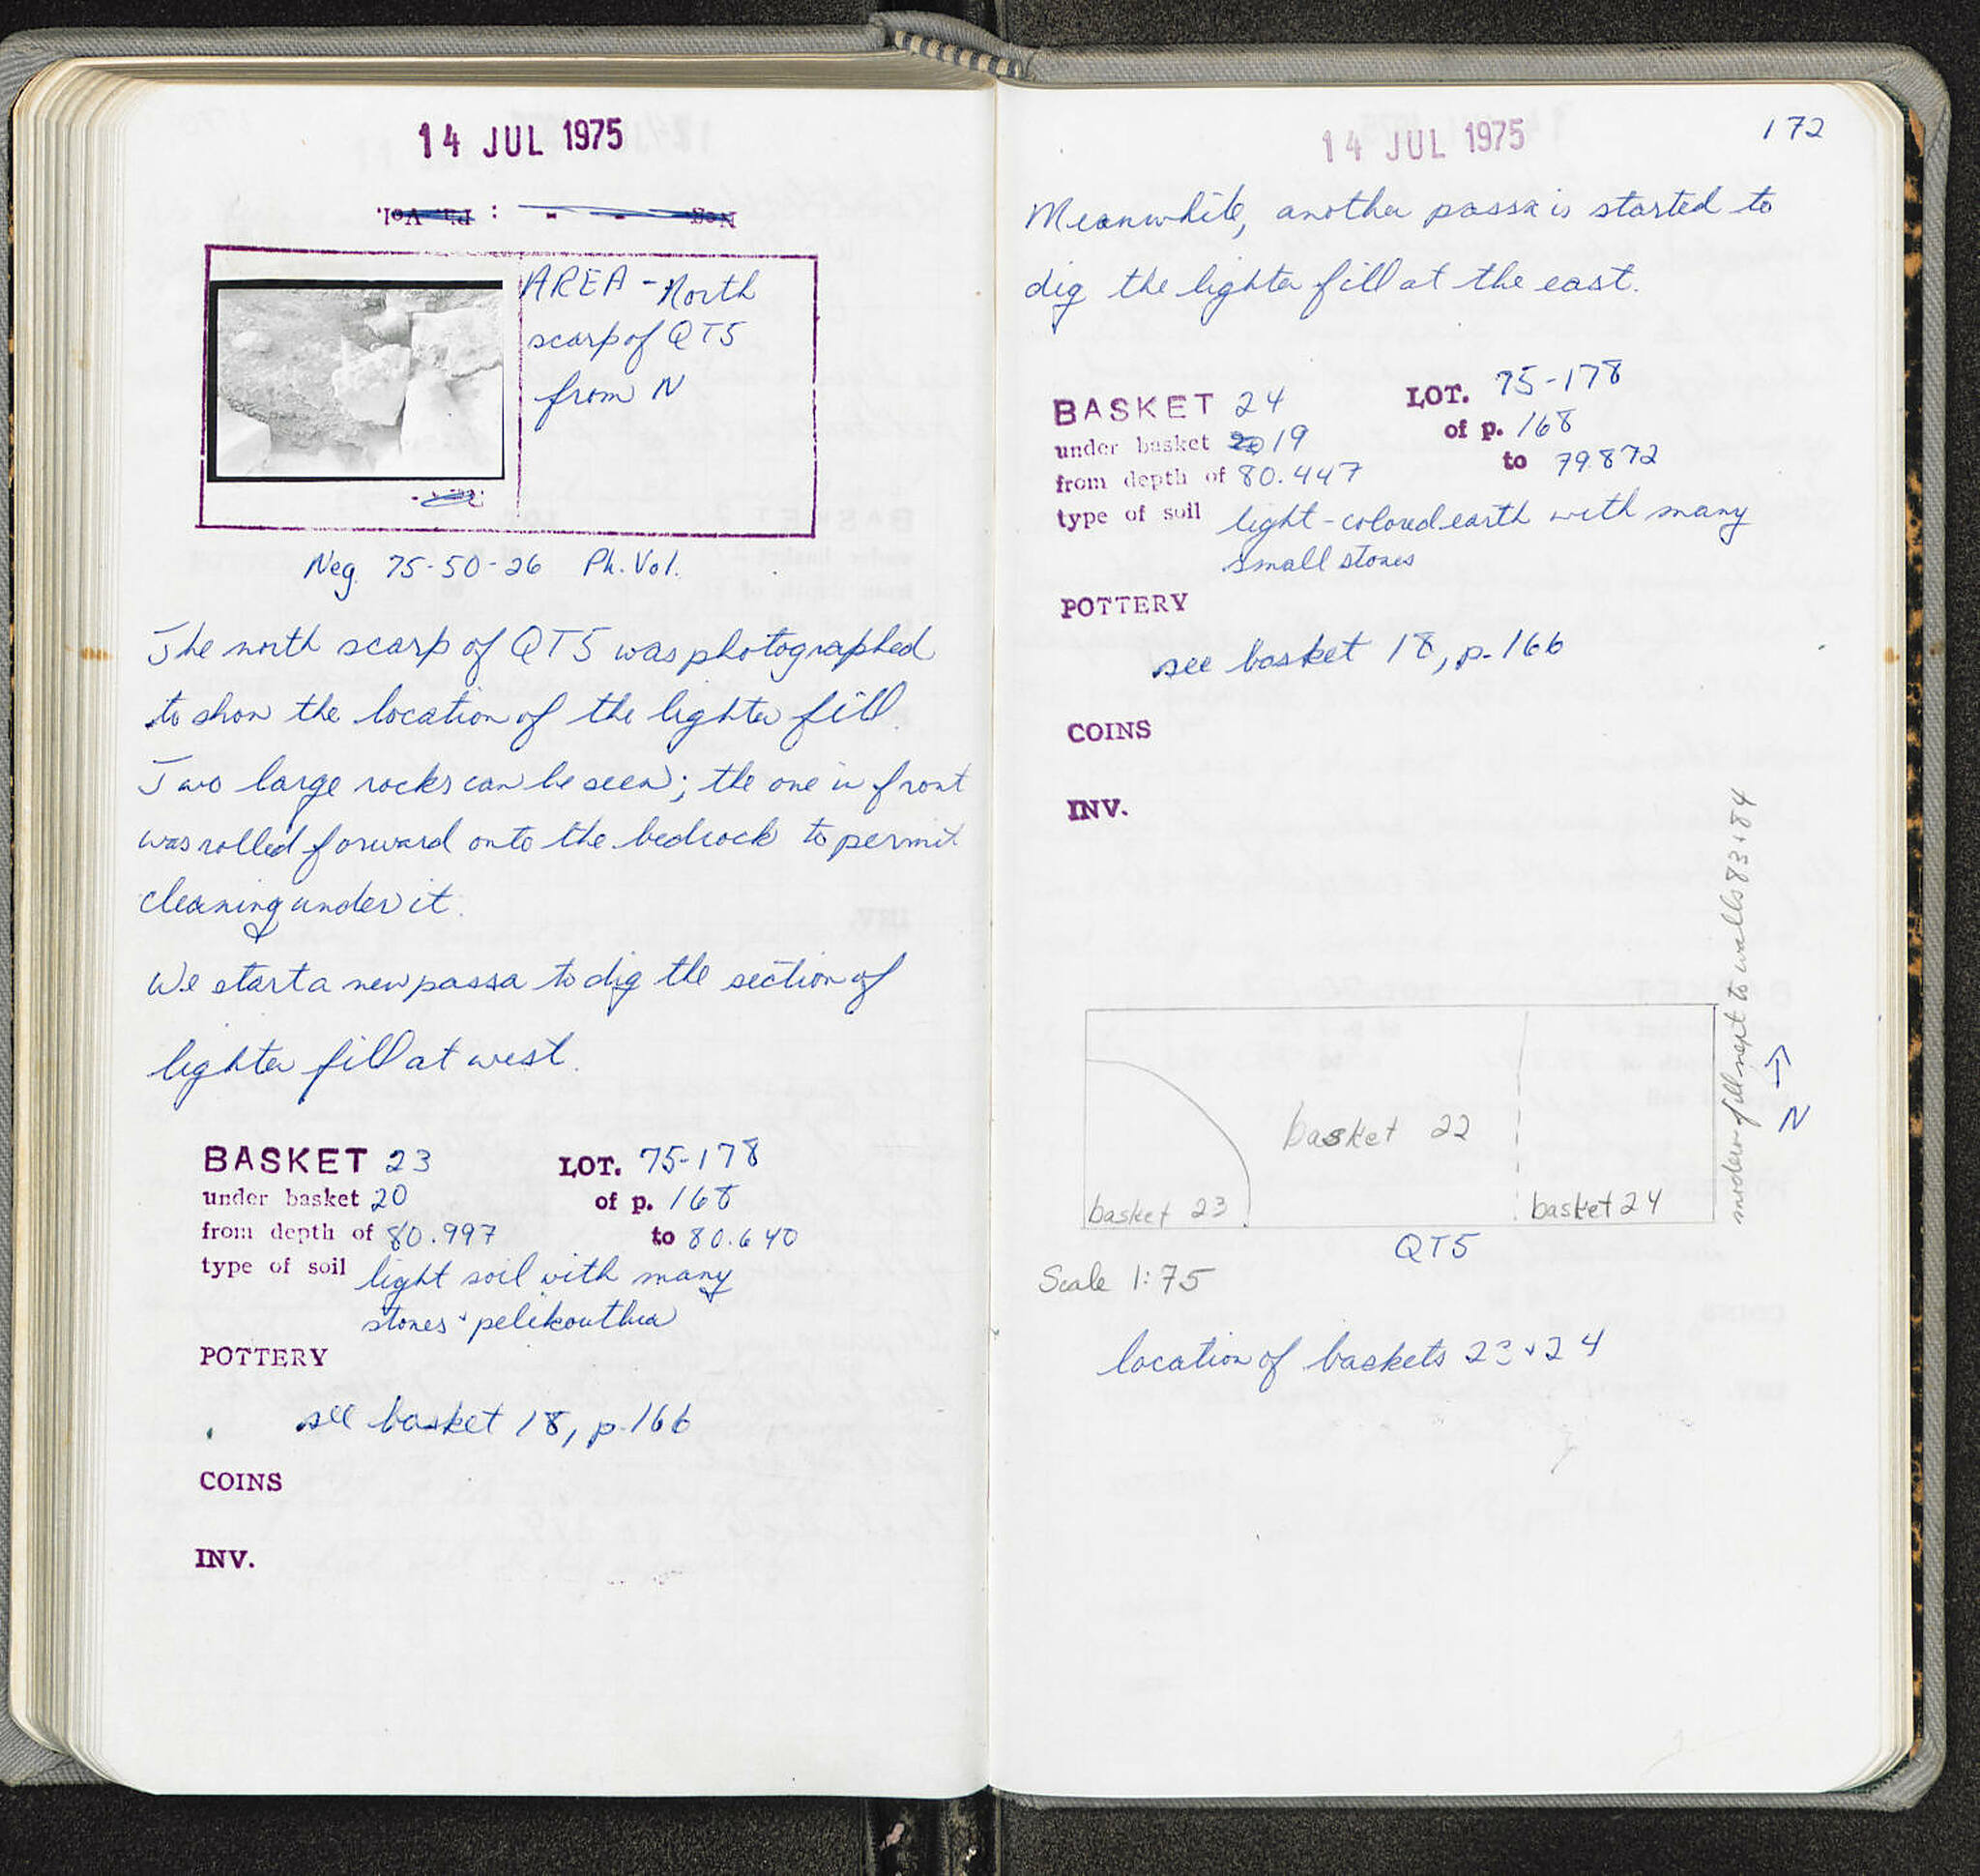 14 JUL 1975
Neg. - - : Ph. Vol.
AREA - North
scarp of QT5
from N
Neg 75-50-26 Ph. Vol.
The north scarp of QT5 was photographed
to show the location of the lighter fill.
Two large rocks can be seen; the one in front
was rolled forward onto the bedrock to permit
cleaning under it.
We start a new passa to dig the section of
lighter fill at west.
BASKET 23 LOT. 75-178
under basket 20 of p. 168
from depth of 80.997 to 80.640
type of soil light soil with many
stones + pelikouthia
POTTERY
see basket 18, p. 166
COINS
INV.
14 JUL 1975
172
Meanwhile, another passa is started to
dig the lighter fill at the east.
BASKET 24 LOT. 75-178
under basket 19 of p. 168
from depth of 80.447 to 79.872
type of soil light-colored earth with many
small stones
POTTERY
see basket 18, p. 166
COINS
INV.
modern fill next to walls 83 + 84
N
basket 22
basket 23
basket 24
QT5
Scale 1:75
location of baskets 23 + 24